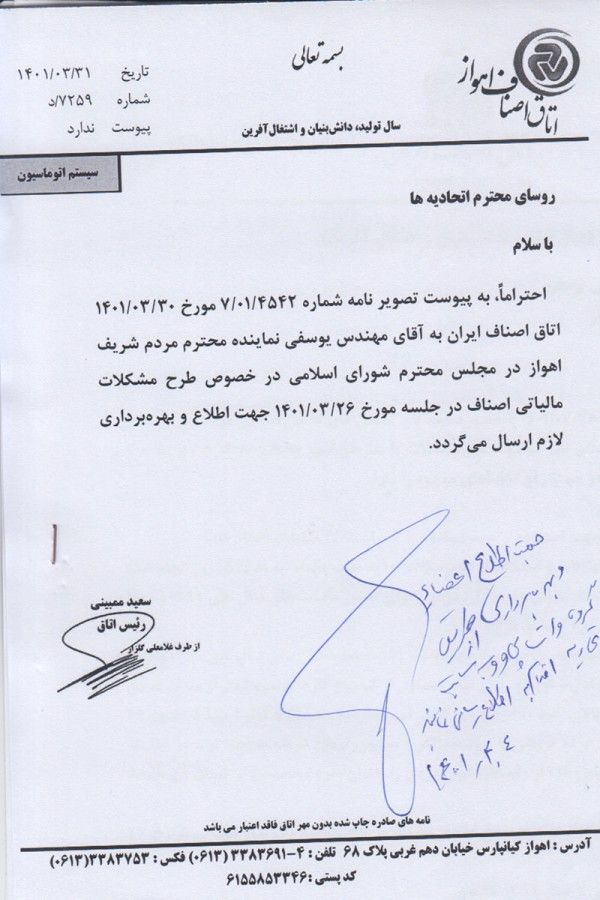 اتاق اصناف اهواز
بسمه تعالی
تاریخ ۱۴۰۱/۰۳/۳۱
شماره ۷۲۵۹/د
پیوست ندارد
سال تولید، دانش‌بنیان و اشتغال‌آفرین
سیستم اتوماسیون
روسای محترم اتحادیه ها
با سلام
احتراماً، به پیوست تصویر نامه شماره ۷/۰۱/۴۵۴۲ مورخ ۱۴۰۱/۰۳/۳۰
اتاق اصناف ایران به آقای مهندس یوسفی نماینده محترم مردم شریف
اهواز در مجلس محترم شورای اسلامی در خصوص طرح مشکلات
مالیاتی اصناف در جلسه مورخ ۱۴۰۱/۰۳/۲۶ جهت اطلاع و بهره‌برداری
لازم ارسال می‌گردد.
جهت اطلاع اعضاء
و بهره برداری
از
گروه واتساپی و وب سایت
اطلاع رسانی نمایند
سعید ممبینی
رئیس اتاق
از طرف غلامعلی گلزار
نامه های صادره چاپ شده بدون مهر اتاق فاقد اعتبار می باشد
آدرس : اهواز کیانپارس خیابان دهم غربی پلاک ۶۸ تلفن : ۴-۳۳۸۳۶۹۱ (۰۶۱۳) فکس : ۳۳۸۳۷۵۳ (۰۶۱۳)
کد پستی : ۶۱۵۵۸۵۳۳۴۶